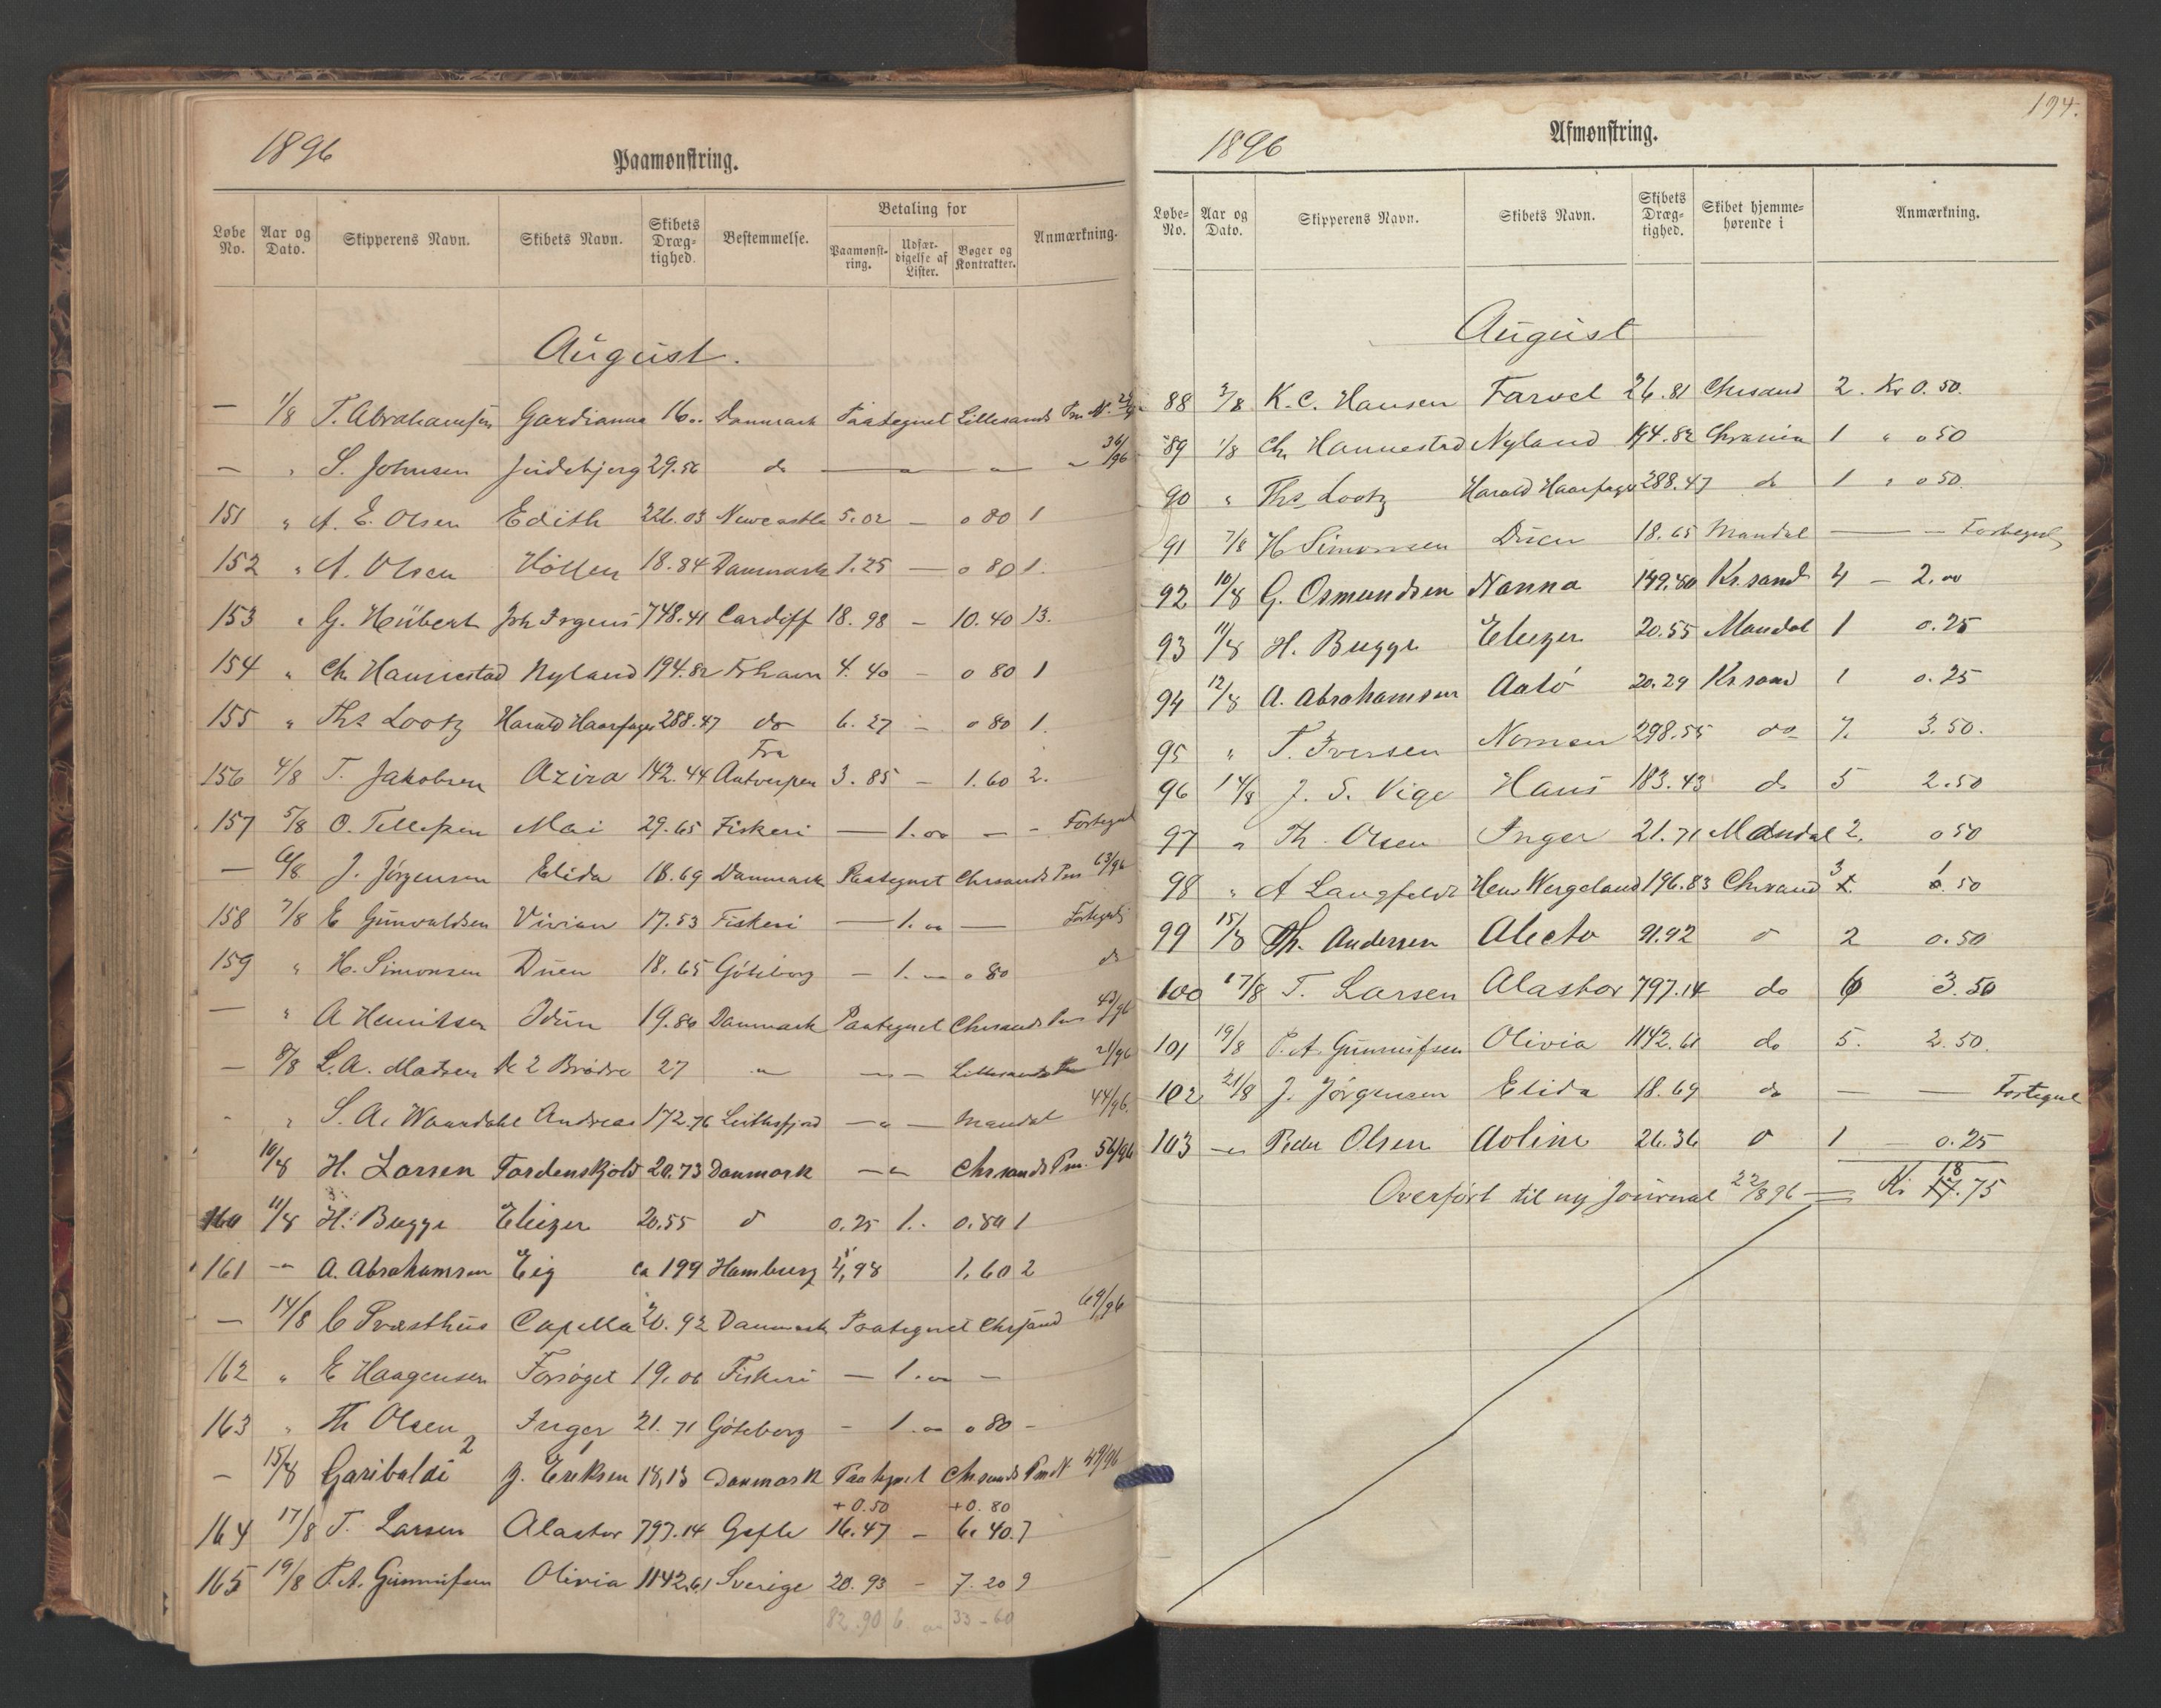 1896
Paamønstring.
Løbe No. Aar og Dato. Skipperens Navn. Skibets Navn. Skibets Dræg-tighed. Bestemmelse. Betaling for Paamønst-ring. Udfær-digelse af Lister. Bøger og Kontrakter. Anmærkning.
August.
— 1/8 T. Abrahamsen Gardianna 16 „ Danmark Paategnet Lillesands Pm N.
— „ S. Johnsen 29.56 do — „ — „ — „ 36/96
151 „ A. E. Olsen Edith 226.03 Newcastle 5.02 — 0 80 1
152 „ A. Olsen 18.84 Danmark 1.25 — 0 80 1.
153 „ G. Hübert 748.41 Cardiff 18.98 — 10.40 13.
154 „ Ch. Hannestad Nyland 194.82 Frhavn 4.40 — 0 80 1
155 „ Ths Lootz Harald Haarfager 288.47 do 6.27 — 0 80 1.
156 4/8 T. Jakobsen Azira 142.44 Fra Antverpen 3.85 — 1.60 2.
157 5/8 O. Tellefsen Mai 29.65 Fiskeri — 1.00 — - Fortegnet
— 6/8 J. Jörgensen Elida 18.69 Danmark Paategnet Chrsands Pm 63/96
158 7/8 E Gunvaldsen Vivian 17.53 Fiskeri — 1.00 —
159 „ H. Simonsen Duen 18.65 Göteborg — 1.— 0 80 do
— „ A Henriksen Idun 19.86 Danmark Paategnet Chrsands Pm 43/96
— 8/8 L. A. Madsen De 2 Brödre 27 „ — — Lillesands Pm 21/96
- „ S. A. Waardahl Andreas 172.76 — „ — Mandal 44/96.
10/8 H. Larsen Tordenskjold 20.73 Danmark — „ Chrsands Pm. 56/96
160 11/8 H. Bugge Eliezer 20.55 d 0.25 1.. 0.80 1
161 — „ A. Abrahamsen Eig ca 199 Hamburg 4,98 1,60 2
— 14/8 C Præsthus Capella 20.92 Danmark Paategnet Chrsand 69/96
162 „ E Haagensen Forsöget 19.06 Fiskeri — 1.00 —
163 „ Th Olsen Inger 21.71 Göteborg - 1.00 0 80 -
— 15/8 Garibaldi 2 J. Eriksen 1 18,13 Danmark Paategnet Chrsands Pm N 49/96
+0.50 +0.80
164 17/8 T. Larsen Alastor 797.14 Gefle 16.47 — 6.40 7
165 19/8 P. A. Gunnufsen Olivia 1142.61 Sverige 20.93 - 7.20 9
82.90 6 00 33-60
194.
1896
Afmønstring.
Løbe-No. Aar og Dato. Skipperens Navn. Skibets Navn. Skibets Dræg-tighed. Skibet hjemme-hørende i Anmærkning.
August
88 3/8 K. C. Hansen Farvel 26.81 Chrsand 2. Kr 0.50.
89 1/8 Ch. Hannestad Nyland 194.82 Chrania 1 „ 0 50
90 „ Ths Lootz Harald Haarfager 288.47 do 1 „ 0 50.
91 7/8 H Simonsen Duen 18.65 Mandal — — Fortegnet
92 10/8 G. Osmundsen Nanna 149.80 Kr.sand 4 — 2.00
93 11/8 H. Bugge Eliezer 20.55 Mandal 1 0.25
94 12/8 A. Abrahamsen Aalö 20.29 Kr.sand 1 0.25
95 „ T. Iversen Norman 298.55 do 7. 3.50.
96 14/8 J. S. Vige Hans 183.43 do 5 2.50
97 „ Th. Olsen Inger 21.71 Mandal 2. 0 50
98 „ A Langfeldt Hen Wergeland 196.83 Chrsand 3 1.50
99 15/8 Th. Andersen Alecto 91.92 d 2 0.50
100 17/8 T. Larsen Alastor 797.14 do 6 3.50
101 19/8 P. A. Gunnufsen Olivia 1142.61 do 5. 2.50.
102 21/8 J. Jörgensen Elida 18.69 do — — Fortegnet
103 — „ Peder Olsen Aoline 26.36 d 1 — 0.25
Overfört til ny Journal 22/8 96 — Kr 18.75